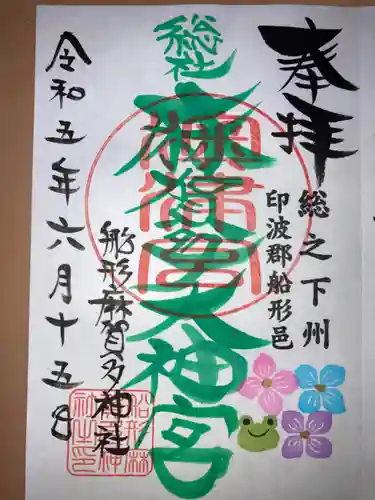 奉拝
総之下州
印波郡船形邑
総社
麻賀多大神宮
船形麻賀多神社
令和五年六月十五日